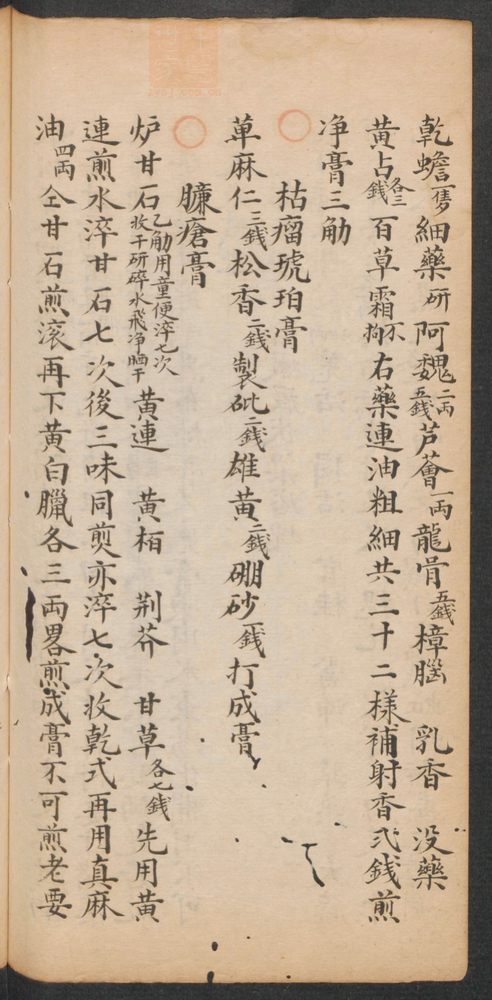 乾蟾一隻細藥研阿魏二両五錢芦薈一両龍骨五錢樟腦 乳香 没藥
黄占各三錢百草霜不拘右藥連油粗細共三十二樣補射香弍錢煎
净膏三觔
枯瘤琥珀膏
草麻仁三錢松香二錢製砒二錢雄黄二錢硼砂一錢打成膏
臁瘡膏
炉甘石乙觔用童便淬七次收干研碎水飛净晒干黄連 黄栢 荆芥 甘草各七錢先用黄
連煎水淬甘石七次後三味同煎亦淬七次收乾式再用真麻
油四両仝甘石煎滚再下黄白臘各三両畧煎成膏不可煎老要